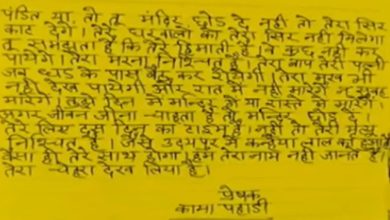 पंडित या तो तु मंदिर छोड दे नही तो तेरा सिर
काट देंगे। तेरे घरवालो को तेरा सिर नही मिलेगा
तु समझता है कि तेरे हिमाती है वि कुछ नही कर
पायेंगे। तेरा मरना निश्चित है। तेरा बाप तेरी पत्नी
जब धड के पास बैठ कर रोयेगी। तेरा मुख भी
नही देख पायेगी और रात मे नही मारेंगे न सुबह
मारेंगे तुझे दिन मे मन्दिर मे या रास्ते मे मारेंगे
अगर जीवन जीना चाहता है तो मन्दिर छोड दे।
तेरे लिए दस दिन का टाइम है। नही तो तेरी मृत्यु
निश्चित है। जैसे उदयपुर मे कन्हैया लाल का हुआ
वैसा ही तेरे साथ होगा हम तेरा नाम नही जानते है।
तेरा चेहरा देख लिया है।
प्रेषक
कामा पहाडी